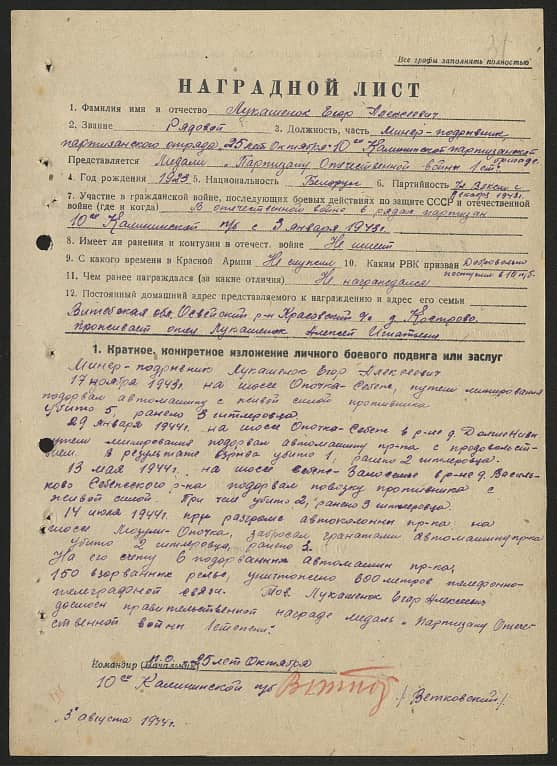 31
Все графы заполнять полностью
НАГРАДНОЙ ЛИСТ
1. Фамилия имя и отчество Лукашенок Егор Алексеевич
2. Звание Рядовой 3. Должность, часть Минер-подрывник
партизанского отряда „25 лет Октября" 10ой Калининской партизанской бригады
Представляется Медали „Партизану Отечественной войны I ст."
4. Год рождения 1923 5. Национальность Белорус 6. Партийность Чл. ВЛКСМ с 1943г.
7. Участие в гражданской войне, последующих боевых действиях по защите СССР и отечественной
войне (где и когда) В отечественной войне в рядах партизан
10ой Калининской п/б с 3 января 1943г.
8. Имеет ли ранения и контузии в отечест. войне Не имеет
9. С какого времени в Красной Армии Не служил 10. Каким РВК призван Добровольно поступил в 10 п/б.
11. Чем ранее награждался (за какие отличия) Не награждался
12. Постоянный домашний адрес представляемого к награждению и адрес его семьи
Витебская обл. Освейский р-н д. Кострово.
Проживает отец Лукашенок Алексей Игнатьевич
1. Краткое, конкретное изложение личного боевого подвига или заслуг
Минер-подрывник Лукашенок Егор Алексеевич
17 ноября 1943г. на шоссе Опочка-Себеж, путем минирования
подорвал автомашину с живой силой противника
убито 5, ранено 3 гитлеровца.
29 января 1944г. на шоссе Опочка-Себеж в р-не д. Долгие Нивы
путем минирования подорвал автомашину пр-ка с продовольст-
вием. В результате взрыва убито 1, ранено 2 гитлеровца.
13 мая 1944г. на шоссе в р-не д. Василь-
ково Себежского р-на подорвал повозку противника с
живой силой. При чем убито 2, ранено 3 гитлеровца.
14 июля 1944г. при разгроме автоколонны пр-ка на
шоссе Мозули-Опочка, забросал гранатами автомашину пр-ка
убито 2 гитлеровца, ранено 3.
На его счету 6 подорванных автомашин пр-ка,
150 взорванных рельс, уничтожено 600 метров телефонно-
телеграфной связи. Тов. Лукашенок Егор Алексеевич
достоин правительственной награде медаль „Партизану Отече-
ственной войны I степени".
Командир (Начальник) п.о. 25 лет Октября
10ой Калининской п/б /Ветковский/
„5" августа 1944г.